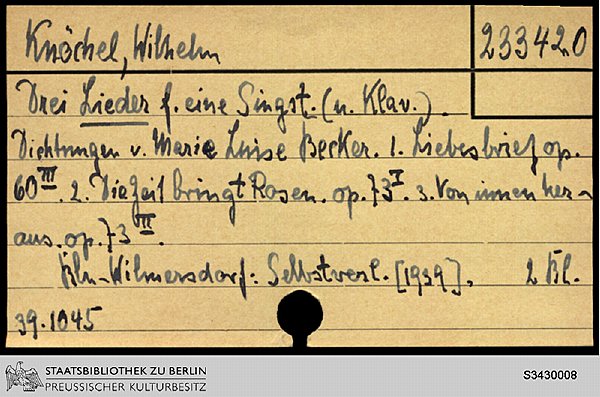 Knöchel, Wilhelm
233420
Drei Lieder f. eine Singst. (u. Klav.).
Dichtungen v. Marie Luise Becker. 1. Liebesbrief op.
60III. 2. Die Zeit bringt Rosen. op. 73I. 3. Von innen her-
aus. op. 73II.
Bln-Wilmersdorf: Selbstverl. [1939]. 2 Bl.
39.1045
STAATSBIBLIOTHEK ZU BERLIN
PREUSSISCHER KULTURBESITZ
S3430008